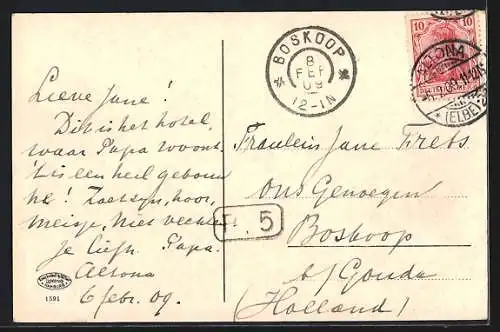 BOSKOOP
8
FEB
09
12-1N
10 10
ALTONA
(ELBE)
Lieve Jane!
Dit is het hotel,
waar Papa woont
't is een heel gebouw
hé! Zoet zijn, hoor,
meisje, niet
Je liefh. Papa.
Altona
6 febr. 09.
Fräulein Jane
Ons Genoegen
Boskoop
b/ Gouda
(Holland)
5
1591